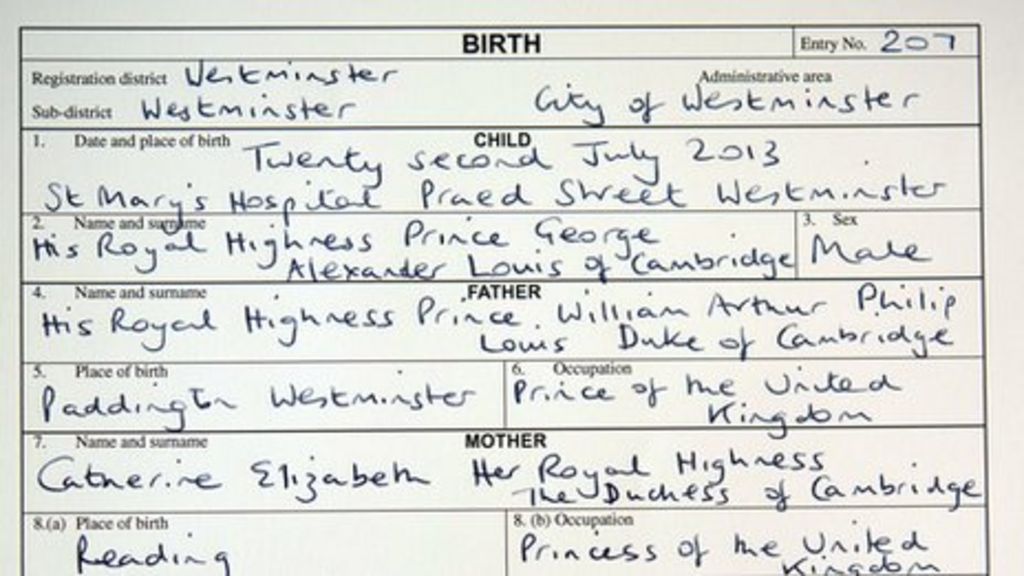 BIRTH Entry No. 207
Registration district Westminster Administrative area
Sub-district Westminster City of Westminster
1. Date and place of birth CHILD
Twenty second July 2013
St Mary's Hospital Praed Street Westminster
2. Name and surname 3. Sex
His Royal Highness Prince George Male
Alexander Louis of Cambridge
4. Name and surname FATHER
His Royal Highness Prince William Arthur Philip
Louis Duke of Cambridge
5. Place of birth 6. Occupation
Paddington Westminster Prince of the United
Kingdom
7. Name and surname MOTHER
Catherine Elizabeth Her Royal Highness
The Duchess of Cambridge
8.(a) Place of birth 8. (b) Occupation
Reading Princess of the United
Kingdom